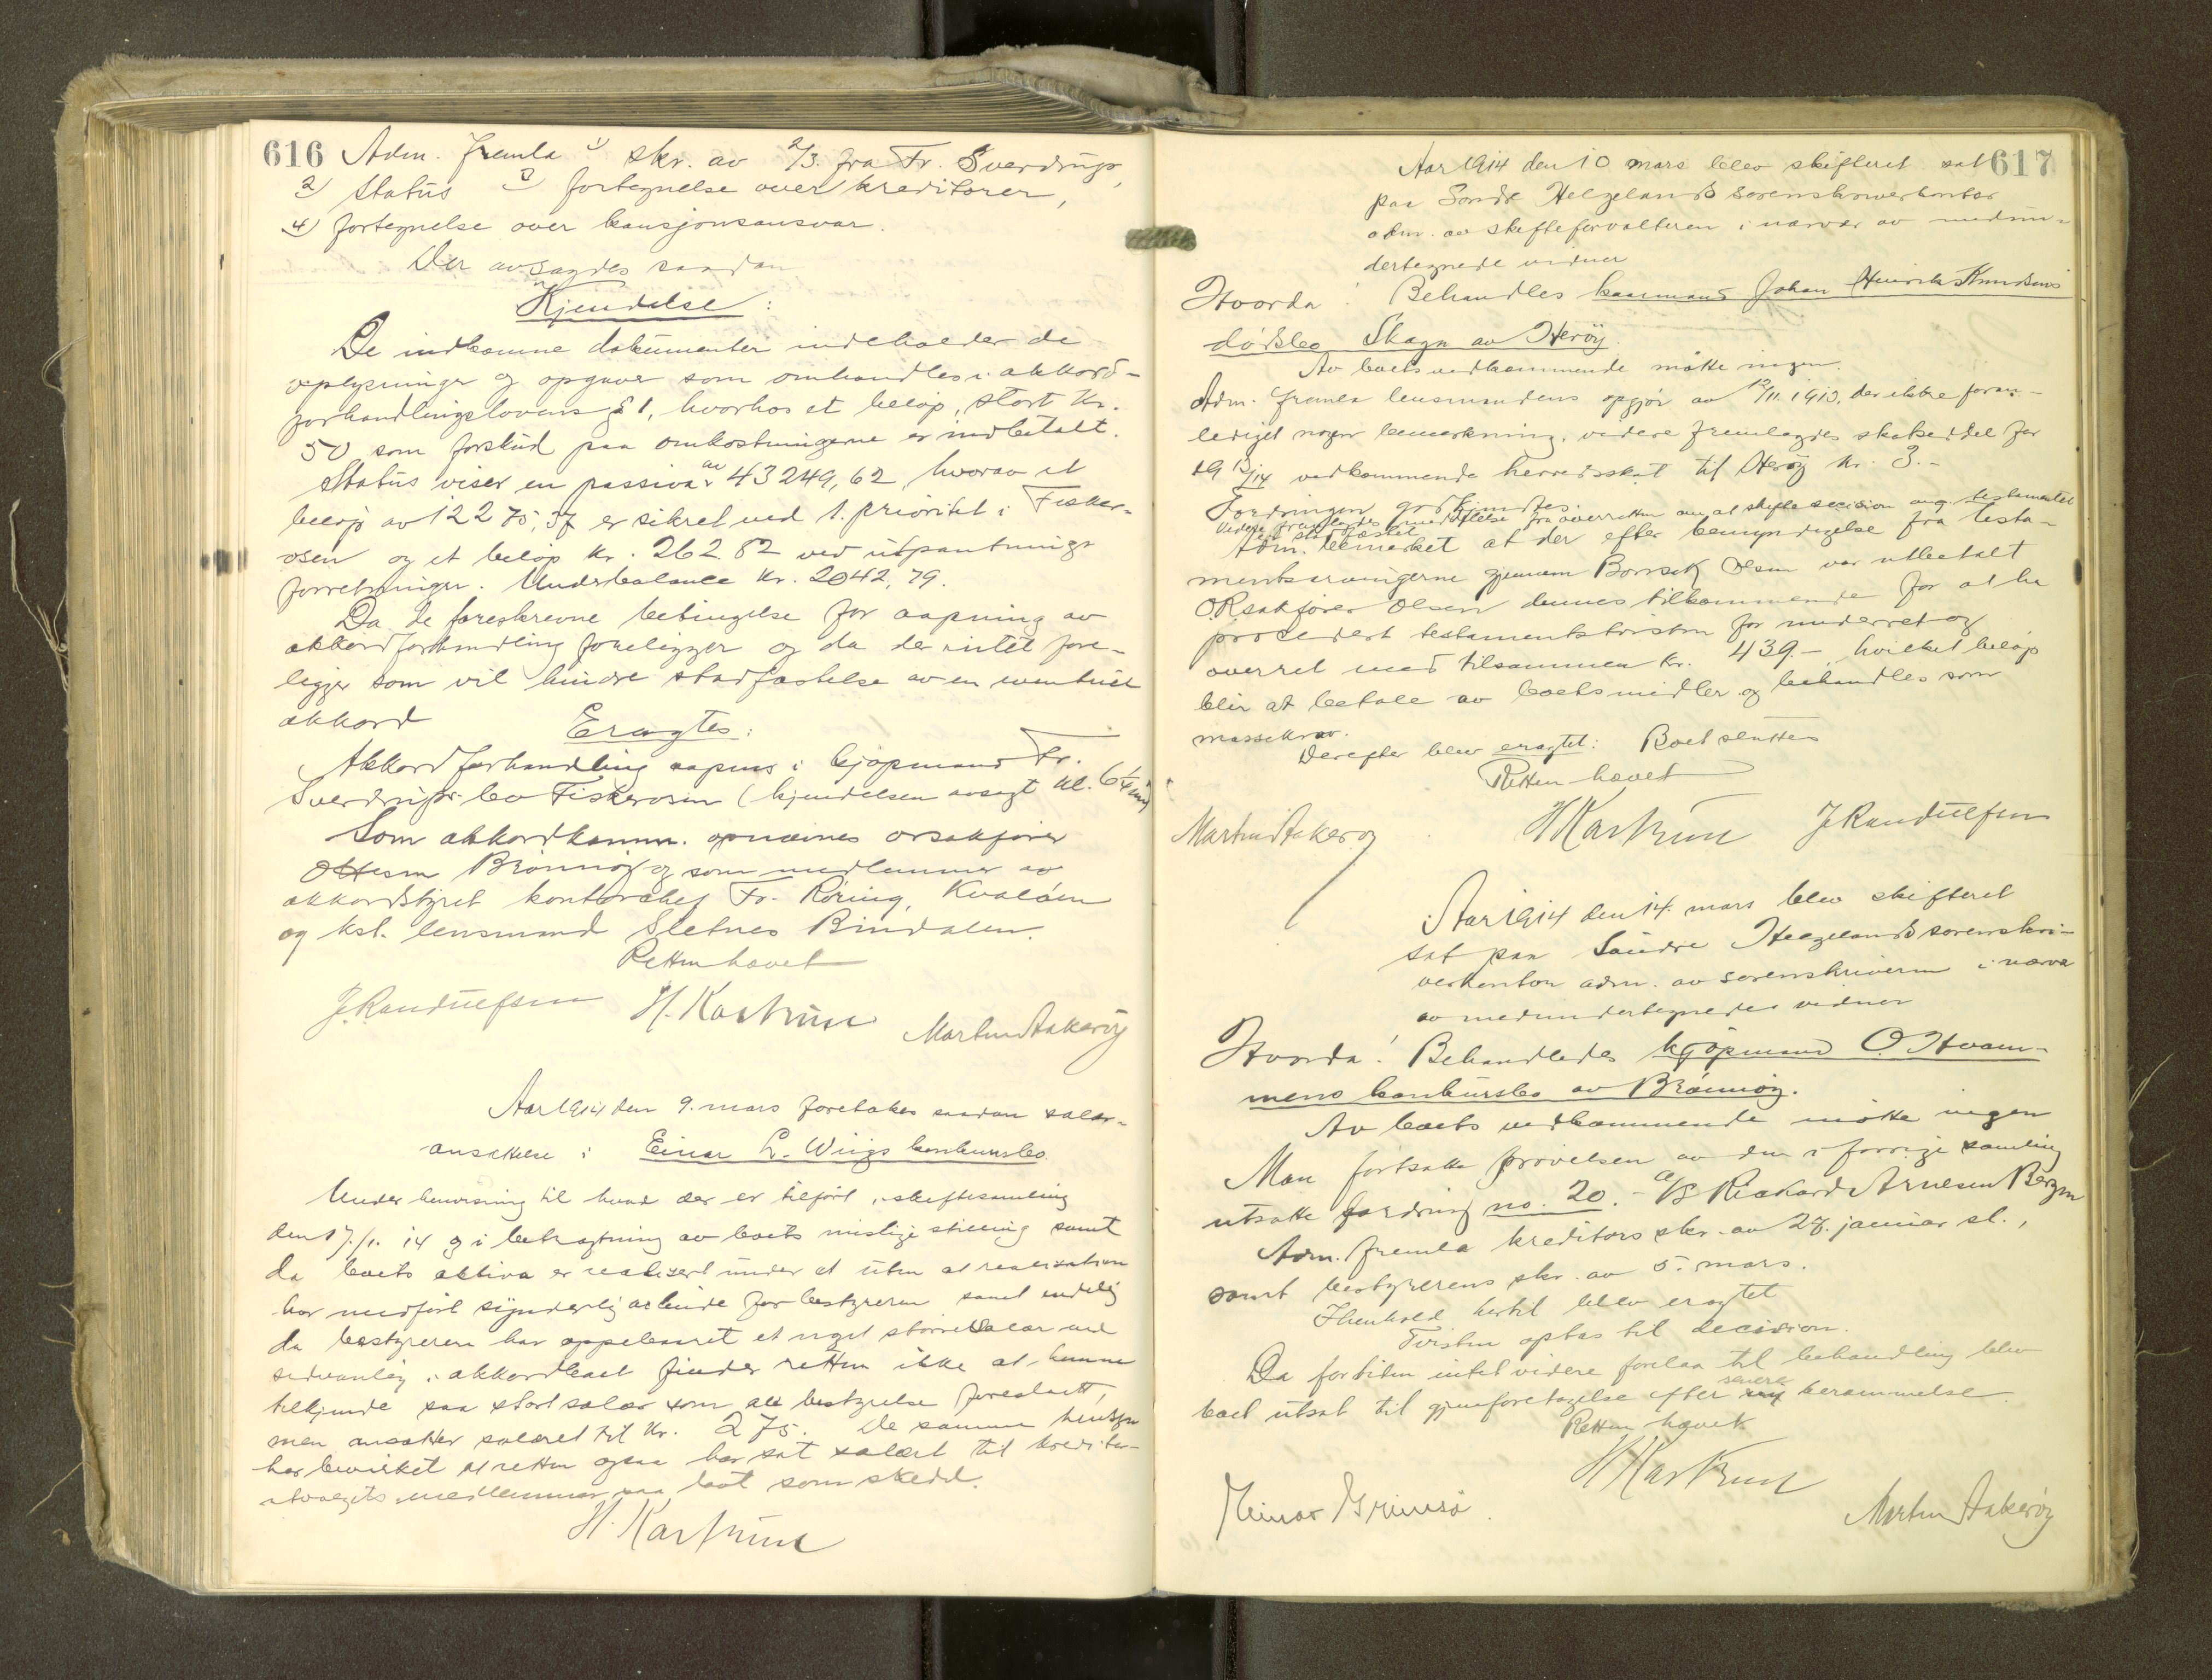 616 Adm. fremla 1) skr. av 2/3. fra Fr. Sverdrup,
2) Status 3) fortegnelse over kreditorer,
4) fortegnelse over kausjonsansvar.
Der avsagdes saadan
Kjendelse:
De indkomne dokumenter indeholder de
oplysninger og opgaver som omhandles i akkord-
forhandlingslovens § 1, hvorhos et beløp, stort kr.
50 som forskud paa omkostningerne er indbetalt.
Status viser en passiva av 43249,62, hvorav et
beløp av 12275,37 er sikret ved 1. prioritet i Fisker-
osen og et beløp kr. 26282 ved utpantnings
forretninger. Underbalance kr. 2042,79.
Da de foreskrevne betingelse for aapning av
akkordforhandling foreligger og da der intet fore-
ligger som vil hindre stadfæstelse av en eventuel
akkord Eragtes:
Akkordforhandling aapnes i kjøpmand Fr.
Sverdrups bo Fiskerosen (kjendelsen avsagt kl. 6 1/4
Som akkordkomm. opnævnes orsakfører
Ottesen Brønnøy og som medlemmer av
akkordstyret kontorchef Fr. Røring, Kvaløen
og kst. lensmand Sletnes Bindalen.
Retten hævet
J. Randulfsen H. Kastrun Martin Aakerøy
Aar 1914 den 9. mars foretokes saadan salær-
ansættelse i Einar L. Wiigs konkursbo.
Under henvisning til hvad der er tilført i skiftesamling
den 17/1. 14 og i betragtning av boets mislige stilling samt
da boets aktiva er realisert under et uten at realisation
har medført synderlig arbeide for bestyreren samt endelig
da bestyreren har oppebaaret et noget større salær end
sedvanlig i akkordboet finder retten ikke at kunne
tilkjende saa stort salær som av bestyrelse foreslaatt,
men ansætter salæret til kr. 275. De samme hensyn
har bevirket at retten ogsaa har sat salæret til kreditor-
utvalgets medlemmer saa lavt som skedd.
H. Kastrun
617
Aar 1914 den 10 mars blev skifteret sat
paa Søndre Helgelands sorenskriverkontor
adm. av skifteforvalteren i nærvær av medun-
dertegnede vidner
Hvorda! Behandles kaarmand Johan Henrik Knudsens
dødsbo Skagn av Herøy.
Av boets vedkommende møtte ingen.
Adm. fremla lensmandens opgjør av 12/11. 1913, der ikke foran-
lediget nogen bemerkning, videre fremlagdes skatseddel for
1913/14 vedkommende herredsskat til Herøy kr. 3.-
Fordringen godkjendtes.
Videre fremlagdes meddelelse fra overretten om at skifte decision ang. testamentet
er stadfæstet.
Adm. bemerket at der efter bemyndigelse fra testa-
mentsarvingerne gjennem Olsen var utbetalt
ORsakfører Olsen dennes tilkommende for at ha
procedert testamentstvisten for underret og
overret med tilsammen kr. 439.-, hvilket beløp
blir at betale av boets midler og behandles som
massekrav.
Derefter blev eragtet: Boet sluttes
Retten hævet
Martin Aakerøy H Kastrun J Randulfsen
Aar 1914 den 14. mars blev skifteret
sat paa Søndre Helgelands sorenskri-
verkontor adm. av sorenskriveren i nærvær
av medundertegnedes vidner
Hvorda! Behandledes kjøpmand O. Hvam-
mens konkursbo av Brønnøy.
Av boets vedkommende møtte ingen
Man fortsatte prøvelsen av den i forrige samling
utsatte fordring no. 20. - A/S Rickard Arnesen Bergen
Adm. fremla kreditors skr. av 27. januar sl.,
samt bestyrerens skr. av 5. mars.
I henhold hertil blev eragtet
Tvisten optas til decision.
Da for tiden intet videre forelaa til behandling blev
boet utsat til gjenforetagelse efter senere berammelse.
Retten hævet
H Kastrun
Meinar Grimsø. Martin Aakerøy